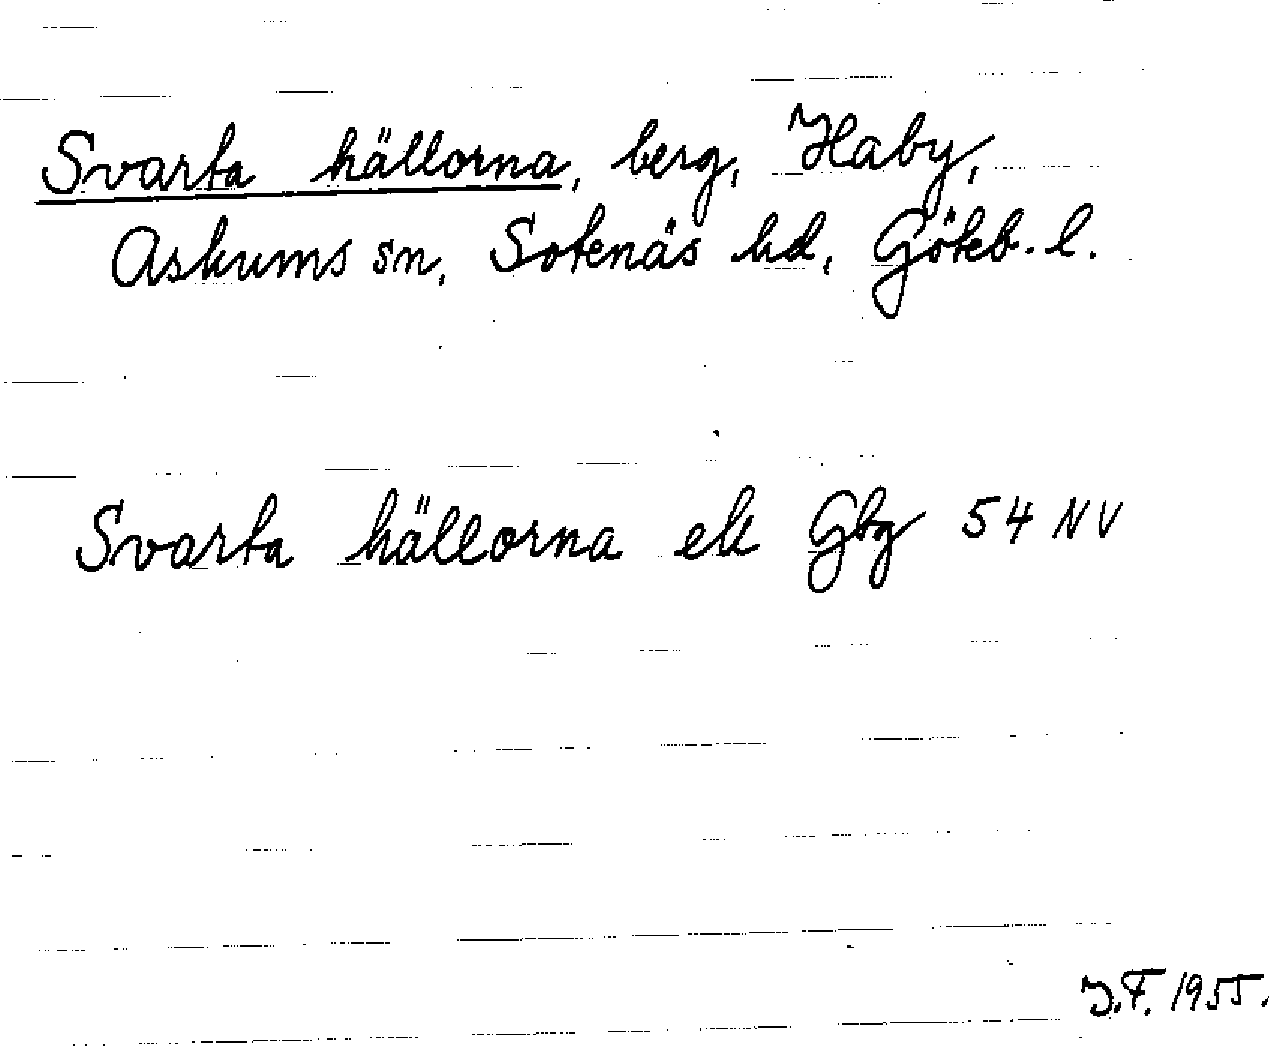 Svarta hällorna, berg, Haby,
Askums sn, Sotenäs hd, Göteb. l.
Svarta hällorna ek Gbg 54 NV
J.F. 1955.